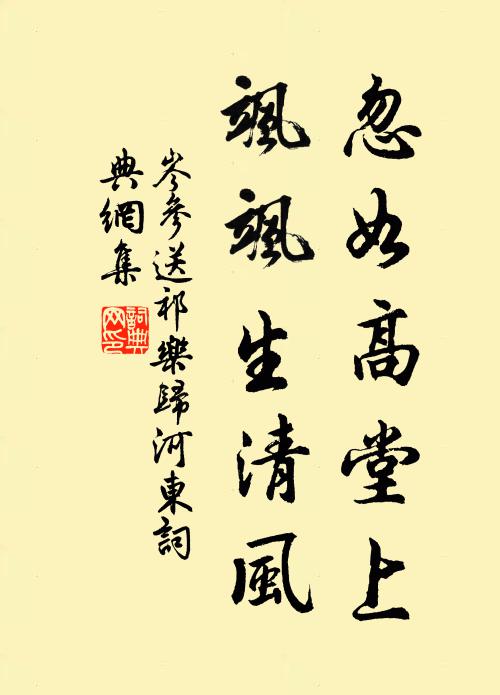 忽如高堂上
颯颯生清風
岑參送祁樂歸河東詞
典網集
詞典
网印